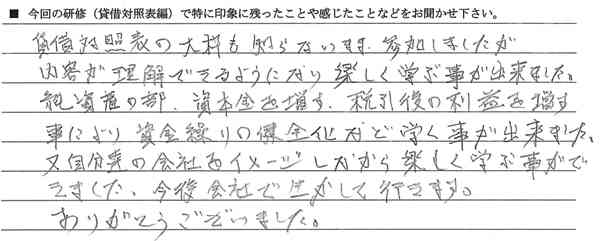 ■ 今回の研修（貸借対照表編）で特に印象に残ったことや感じたことなどをお聞かせ下さい。
貸借対照表の大科も知らないまま、参加しましたが
内容が理解できるようになり楽しく学ぶ事が出来ました。
純資産の部、資本金を増す、税引後の利益を増す
事により資金繰りの健全化など学く事が出来ました。
又自分達の会社をイメージしながら楽しく学ぶ事がで
きました、今後会社で生かして行きます。
ありがとうございました。